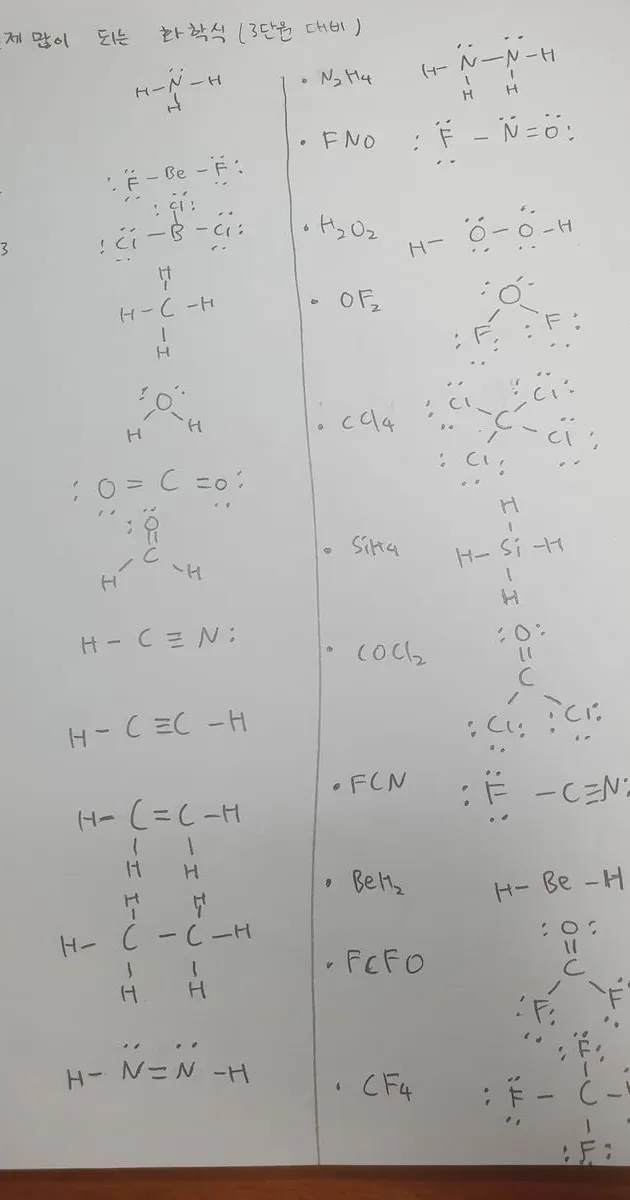 제 많이 되는 화학식 (3단원 대비)
H-N-H
H
:F-Be-F:
:Cl:
:Cl-B-Cl:
3
H
H-C-H
H
:O:
H H
:O=C=O:
:O
||
C
H H
H-C≡N:
H-C≡C-H
H-C=C-H
H H
H H
H-C-C-H
H H
H-N=N-H
• N2H4
H-N-N-H
H H
• FNO
:F-N=O:
• H2O2
H-O-O-H
• OF2
:O:
:F: :F:
• CCl4
:Cl Cl:
C
:Cl: Cl:
• SiH4
H
H-Si-H
H
• COCl2
:O:
||
C
:Cl: :Cl:
• FCN
:F-C≡N:
• BeH2
H-Be-H
• FCFO
:O:
||
C
:F: F
• CF4
:F:
:F-C-
:F: